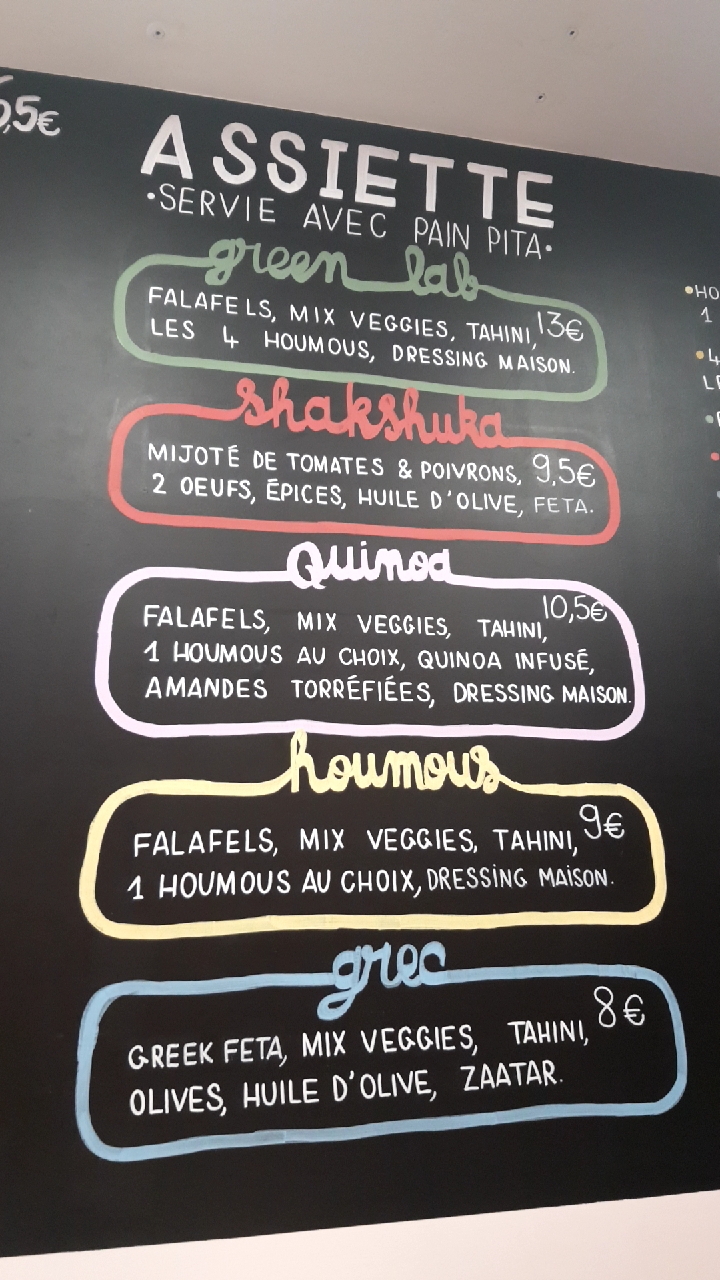 ASSIETTE
•SERVIE AVEC PAIN PITA•
green lab
FALAFELS, MIX VEGGIES, TAHINI, 13€
LES 4 HOUMOUS, DRESSING MAISON.
shakshuka
MIJOTÉ DE TOMATES & POIVRONS, 9,5€
2 OEUFS, ÉPICES, HUILE D'OLIVE, FETA.
Quinoa
FALAFELS, MIX VEGGIES, TAHINI, 10,5€
1 HOUMOUS AU CHOIX, QUINOA INFUSÉ,
AMANDES TORRÉFIÉES, DRESSING MAISON.
houmous
FALAFELS, MIX VEGGIES, TAHINI, 9€
1 HOUMOUS AU CHOIX, DRESSING MAISON.
grec
GREEK FETA, MIX VEGGIES, TAHINI, 8€
OLIVES, HUILE D'OLIVE, ZAATAR.